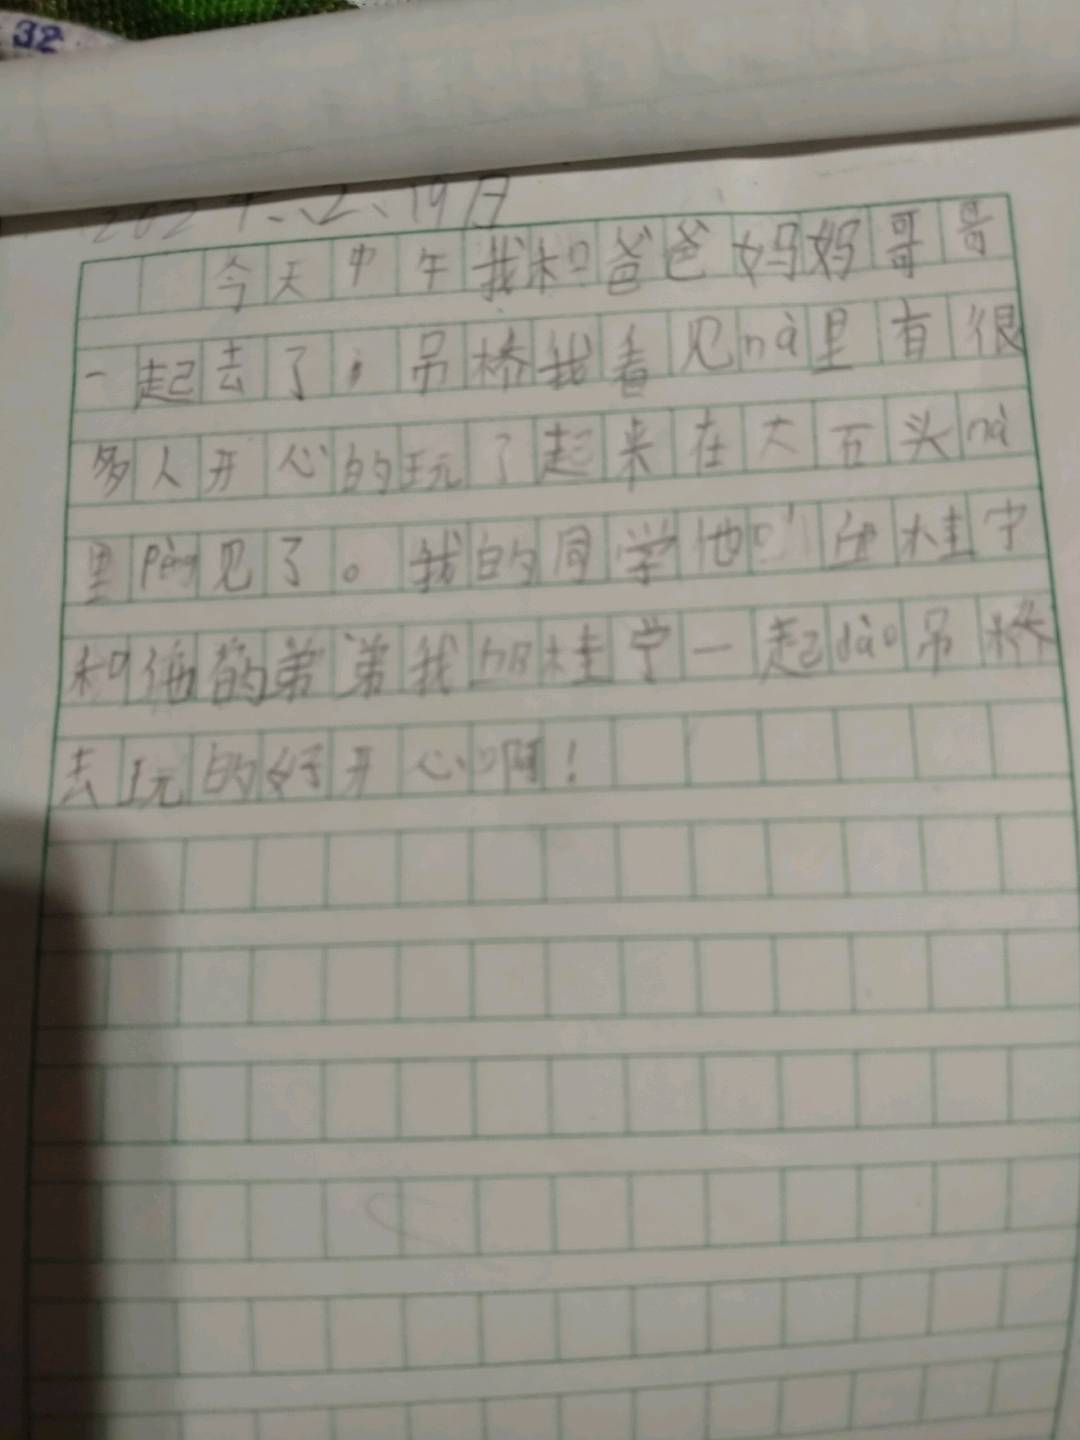 32
2.19日
今天中午我和爸爸妈妈哥哥
一起去了，吊桥我看见nà里有很
多人开心的玩了起来在大石头nà
里pèng见了。我的同学他叫 桂宁
和他的弟弟我 桂宁一起dào吊桥
去玩的好开心啊！